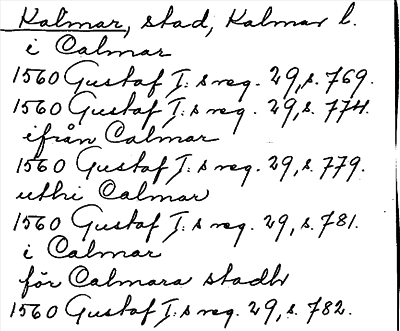 Kalmar, stad, Kalmar l.
i Calmar
1560 Gustaf I:s reg. 29, s. 769.
1560 Gustaf I:s reg. 29, s. 774.
ifrån Calmar
1560 Gustaf I:s reg. 29, s. 779.
uthi Calmar
1560 Gustaf I:s reg. 29, s. 781.
i Calmar
för Calmara stadh
1560 Gustaf I:s reg. 29, s. 782.